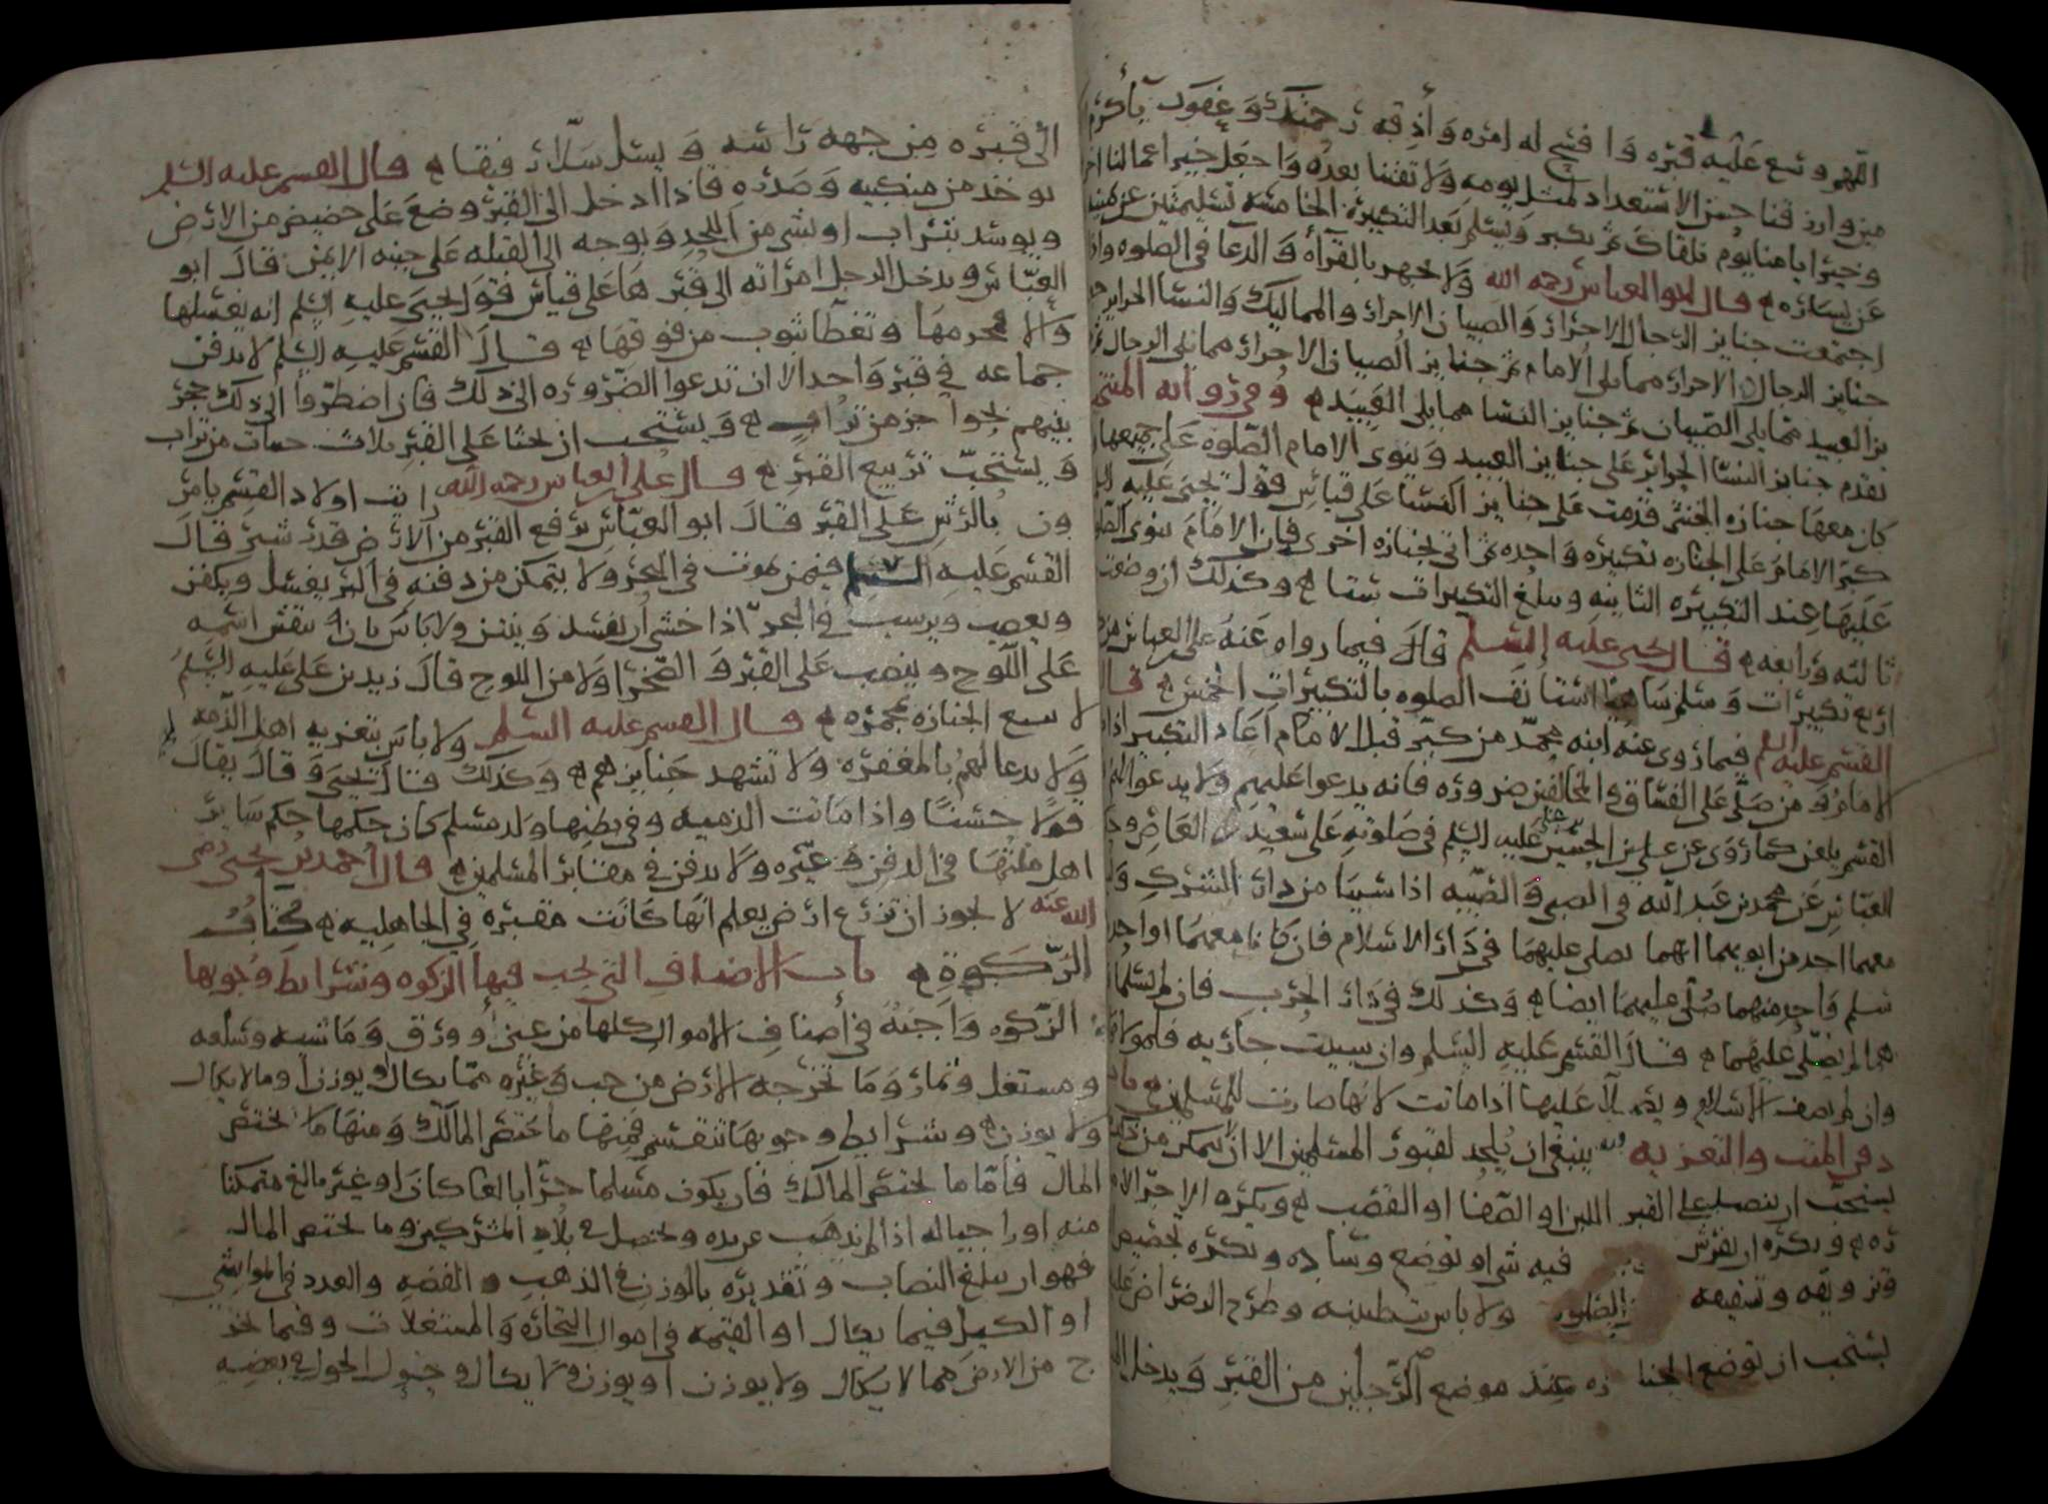 اللهم وسع عليه قبره وافسح له امره واذقه رحمتك وعفوك يا أكرم
من وارزقنا حسن الاستعداد لمثل يومه ولا تفتنا بعده واجعل خير اعمالنا
وخير ايامنا يوم نلقاك ثم يكبر ويسلم بعد التكبيرة الخامسة تسليمتين عن يمينه
عن يساره قال ابو العباس رحمه الله ولا يجهر بالقرآة والدعا في الصلوه واذا
اجتمعت جنايز الرجال الاحرار والصبيان الاحرار والمماليك والنسا الحراير
جنايز الرجال الاحرار مما يلي الامام ثم جنايز الصبيان الاحرار مما يلي الرجال
يز العبيد مما يلي الصبيان ثم جنايز النسا مما يلي العبيد وفي رواية
تقدم جنايز النسا الحراير على جنايز العبيد وينوي الامام الصلوه على جميعها
كان معها جنازه الخنثى قدمت على جنايز النسا على قياس قول يحيى عليه
كبر الامام على الجنازه تكبيره واحده ثم اتي بجنازه اخرى فان الامام ينوي
عليها عند التكبيره الثانيه ويبلغ التكبيرات ستا وكذلك ان وضعت
ثالثه ورابعه قال يحيى عليه السلم قال فيما رواه عنه علي العباس
اربع تكبيرات وسلم ساهيا استانف الصلوه بالتكبيرات الخمس قال
القسم عليه السلم فيما روى عنه ابنه محمد من كبر قبل الامام اعاد التكبير اذا
الامام ومن صلى على الفساق والمخالفين ضروره فانه يدعوا عليهم ولا يدعوا
القسم يلعن كما روى عن علي بن الحسين عليه السلم في صلوته على سعيد بن العاص
العباس عن محمد بن عبد الله في الصبي والصبيه اذا سبيا من دار الشرك
معهما احد من ابويهما انهما يصلى عليهما في دار الاسلام فان كانا معهما او احد
سلم واحد منهما صلى عليهما ايضا وكذلك في دار الحرب فان لم يسلما
هما لم يصلى عليهما قال القسم عليه السلم وان سبيت جاريه
وان لم يصف الاسلام عليها اذا ماتت لانها صارت للمسلمين باب
دفن الميت والتعزيه ينبغي ان يلحد لقبور المسلمين الا ان
يستحب ان ينصب على القبر اللبن او الصفا او القصب ويكره الاجر
ره ويكره ان يفرش فيه شي او توضع وساده ويكره تجصيص
وتزويقه وتسقيفه ولا باس بتطيينه وطرح الرضراض
يستحب ان توضع الجنا زه عند موضع الرجلين من القبر ويدخل
الى قبره من جهة راسه ويسل سلا رفيقا قال القسم عليه السلم
يوخذ من منكبيه وصدره فاذا ادخل الى القبر وضع على حضيض من الارض
ويوسد بتراب او نشز من اللحد ويوجه الى القبله على جنبه الايمن قال ابو
العباس ويدخل الرجل امراته الى قبرها على قياس قول يحيى عليه السلم انه يغسلها
والا محرمها وتغطا بثوب من فوقها قال القسم عليه السلم لا يدفن
جماعه في قبر واحد الا ان تدعوا الضروره الى ذلك فان اضطروا الى ذلك حجز
بينهم بحواجز من تراب ويستحب ان يحثا على القبر ثلاث حثيات من تراب
ويستحب تربيع القبر قال علي بن العباس رحمه الله رايت اولاد القسم يامر
ون بالرش على القبر قال ابو العباس يرفع القبر من الارض قدر شبر قال
القسم عليه السلم فيمن يموت في البحر ولا يتمكن من دفنه في البر يغسل ويكفن
ويعصب ويرسب في البحر اذا خشي ان يفسد وينتن ولا باس بان ينقش اسمه
على اللوح وينصب على القبر والصخر اولا من اللوح قال زيد بن علي عليه السلم
لا تتبع الجنازه بمجمره قال القسم عليه السلم ولا باس بتعزيه اهل الذمه
ولا يدعا لهم بالمغفره ولا تشهد جنايزهم وكذلك قال يحيى وقال يقال
قولا حسنا واذا ماتت الذميه وفي بطنها ولد مسلم كان حكمها حكم ساير
اهل ملتها في الدفن وغيره ولا يدفن في مقابر المسلمين قال احمد بن يحيى رضي
الله عنه لا يجوز ان تزرع ارض يعلم انها كانت مقبره في الجاهليه كتاب
الزكوة باب الاصناف التي تجب فيها الزكوه وشرايط وجوبها
الزكوه واجبة في أصناف الاموال كلها من عين أو ورق وماشيه وسلعه
ومستغل وثمار وما تخرجه الارض من حب وغيره مما يكال او يوزن او ما لا يكال
ولا يوزن وشرايط وجوبها تنقسم فمنها ما يختص المالك ومنها ما يختص
المال فاما ما يختص المالك فان يكون مسلما حرا بالغا كان او غير بالغ متمكنا
منه او راجيا له اذا لم يذهب عن يده ويحصل في بلاد المشركين وما يختص المال
فهو ان يبلغ النصاب وتقديره بالوزن في الذهب والفضه والعدد في المواشي
او الكيل فيما يكال او القيمه في اموال التجاره والمستغلات وفيما يخر
ج من الارض مما لا يكال ولا يوزن او يوزن ولا يكال وحؤول الحول في بعضه